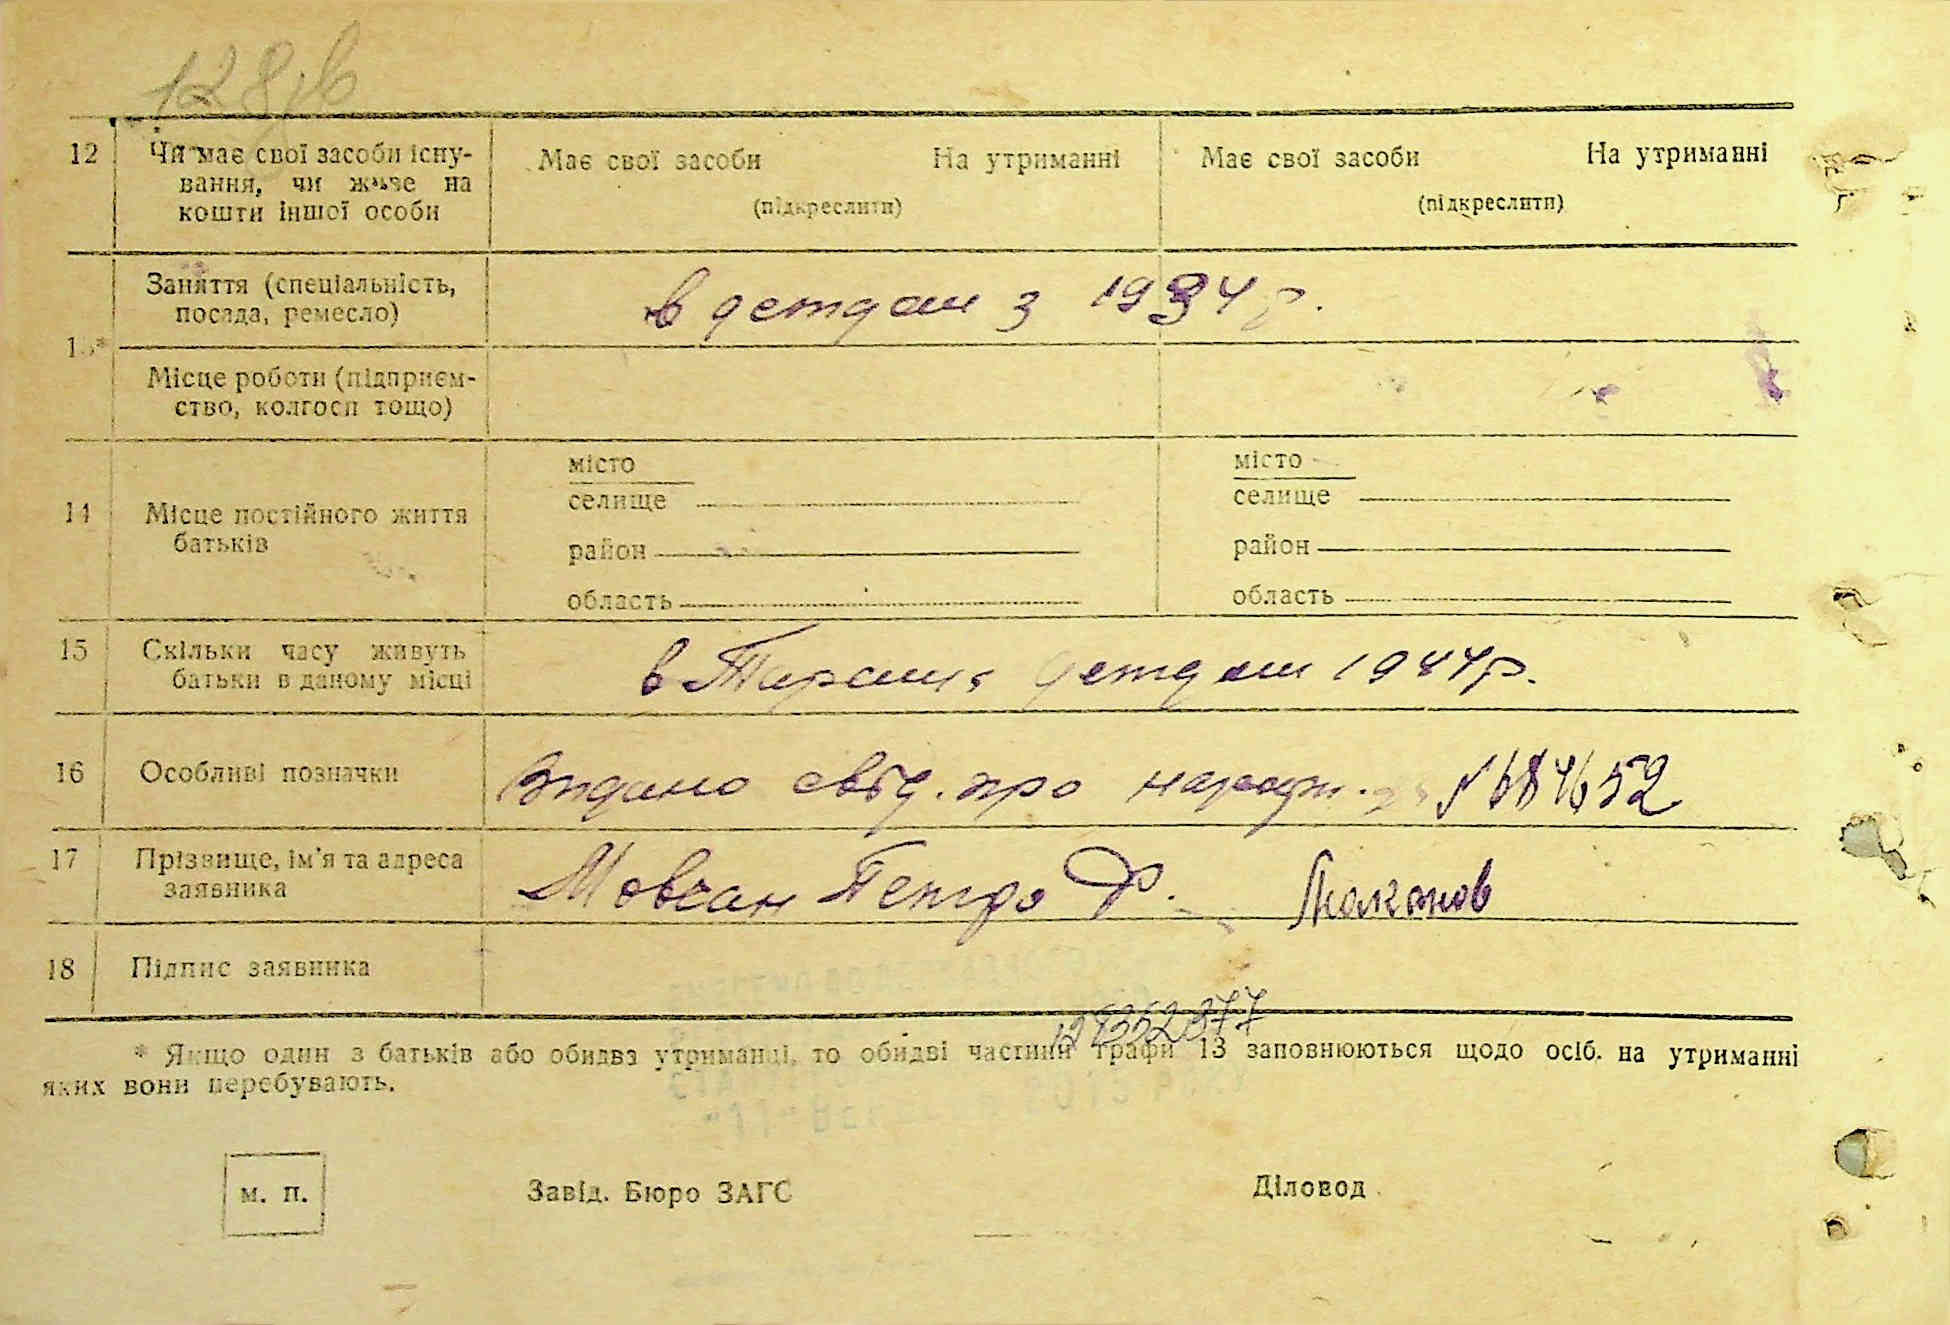 128зв
12 Чи має свої засоби існу-
вання, чи живе на
кошти іншої особи
Має свої засоби На утриманні
(підкреслити)
Має свої засоби На утриманні
(підкреслити)
13*
Заняття (спеціальність,
посада, ремесло)
в детдом з 1934 р.
Місце роботи (підприєм-
ство, колгосп тощо)
14 Місце постійного життя
батьків
місто
селище
район
область
місто
селище
район
область
15 Скільки часу живуть
батьки в даному місці
в детдом 1944р.
16 Особливі позначки
Видано свід. про народж. №
17 Прізвище, ім'я та адреса
заявника
Мовчан Петро Ф.
18 Підпис заявника
* Якщо один з батьків або обидва утриманці, то обидві частини графи 13 заповнюються щодо осіб, на утриманні
яких вони перебувають.
м. п.
Завід. Бюро ЗАГС
Діловод